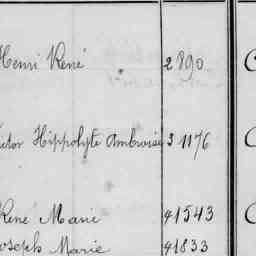 Henri René 2 890
Victor Hippolyte Ambroise 3 1176
René Marie 4 1543
Joseph Marie 4 1833